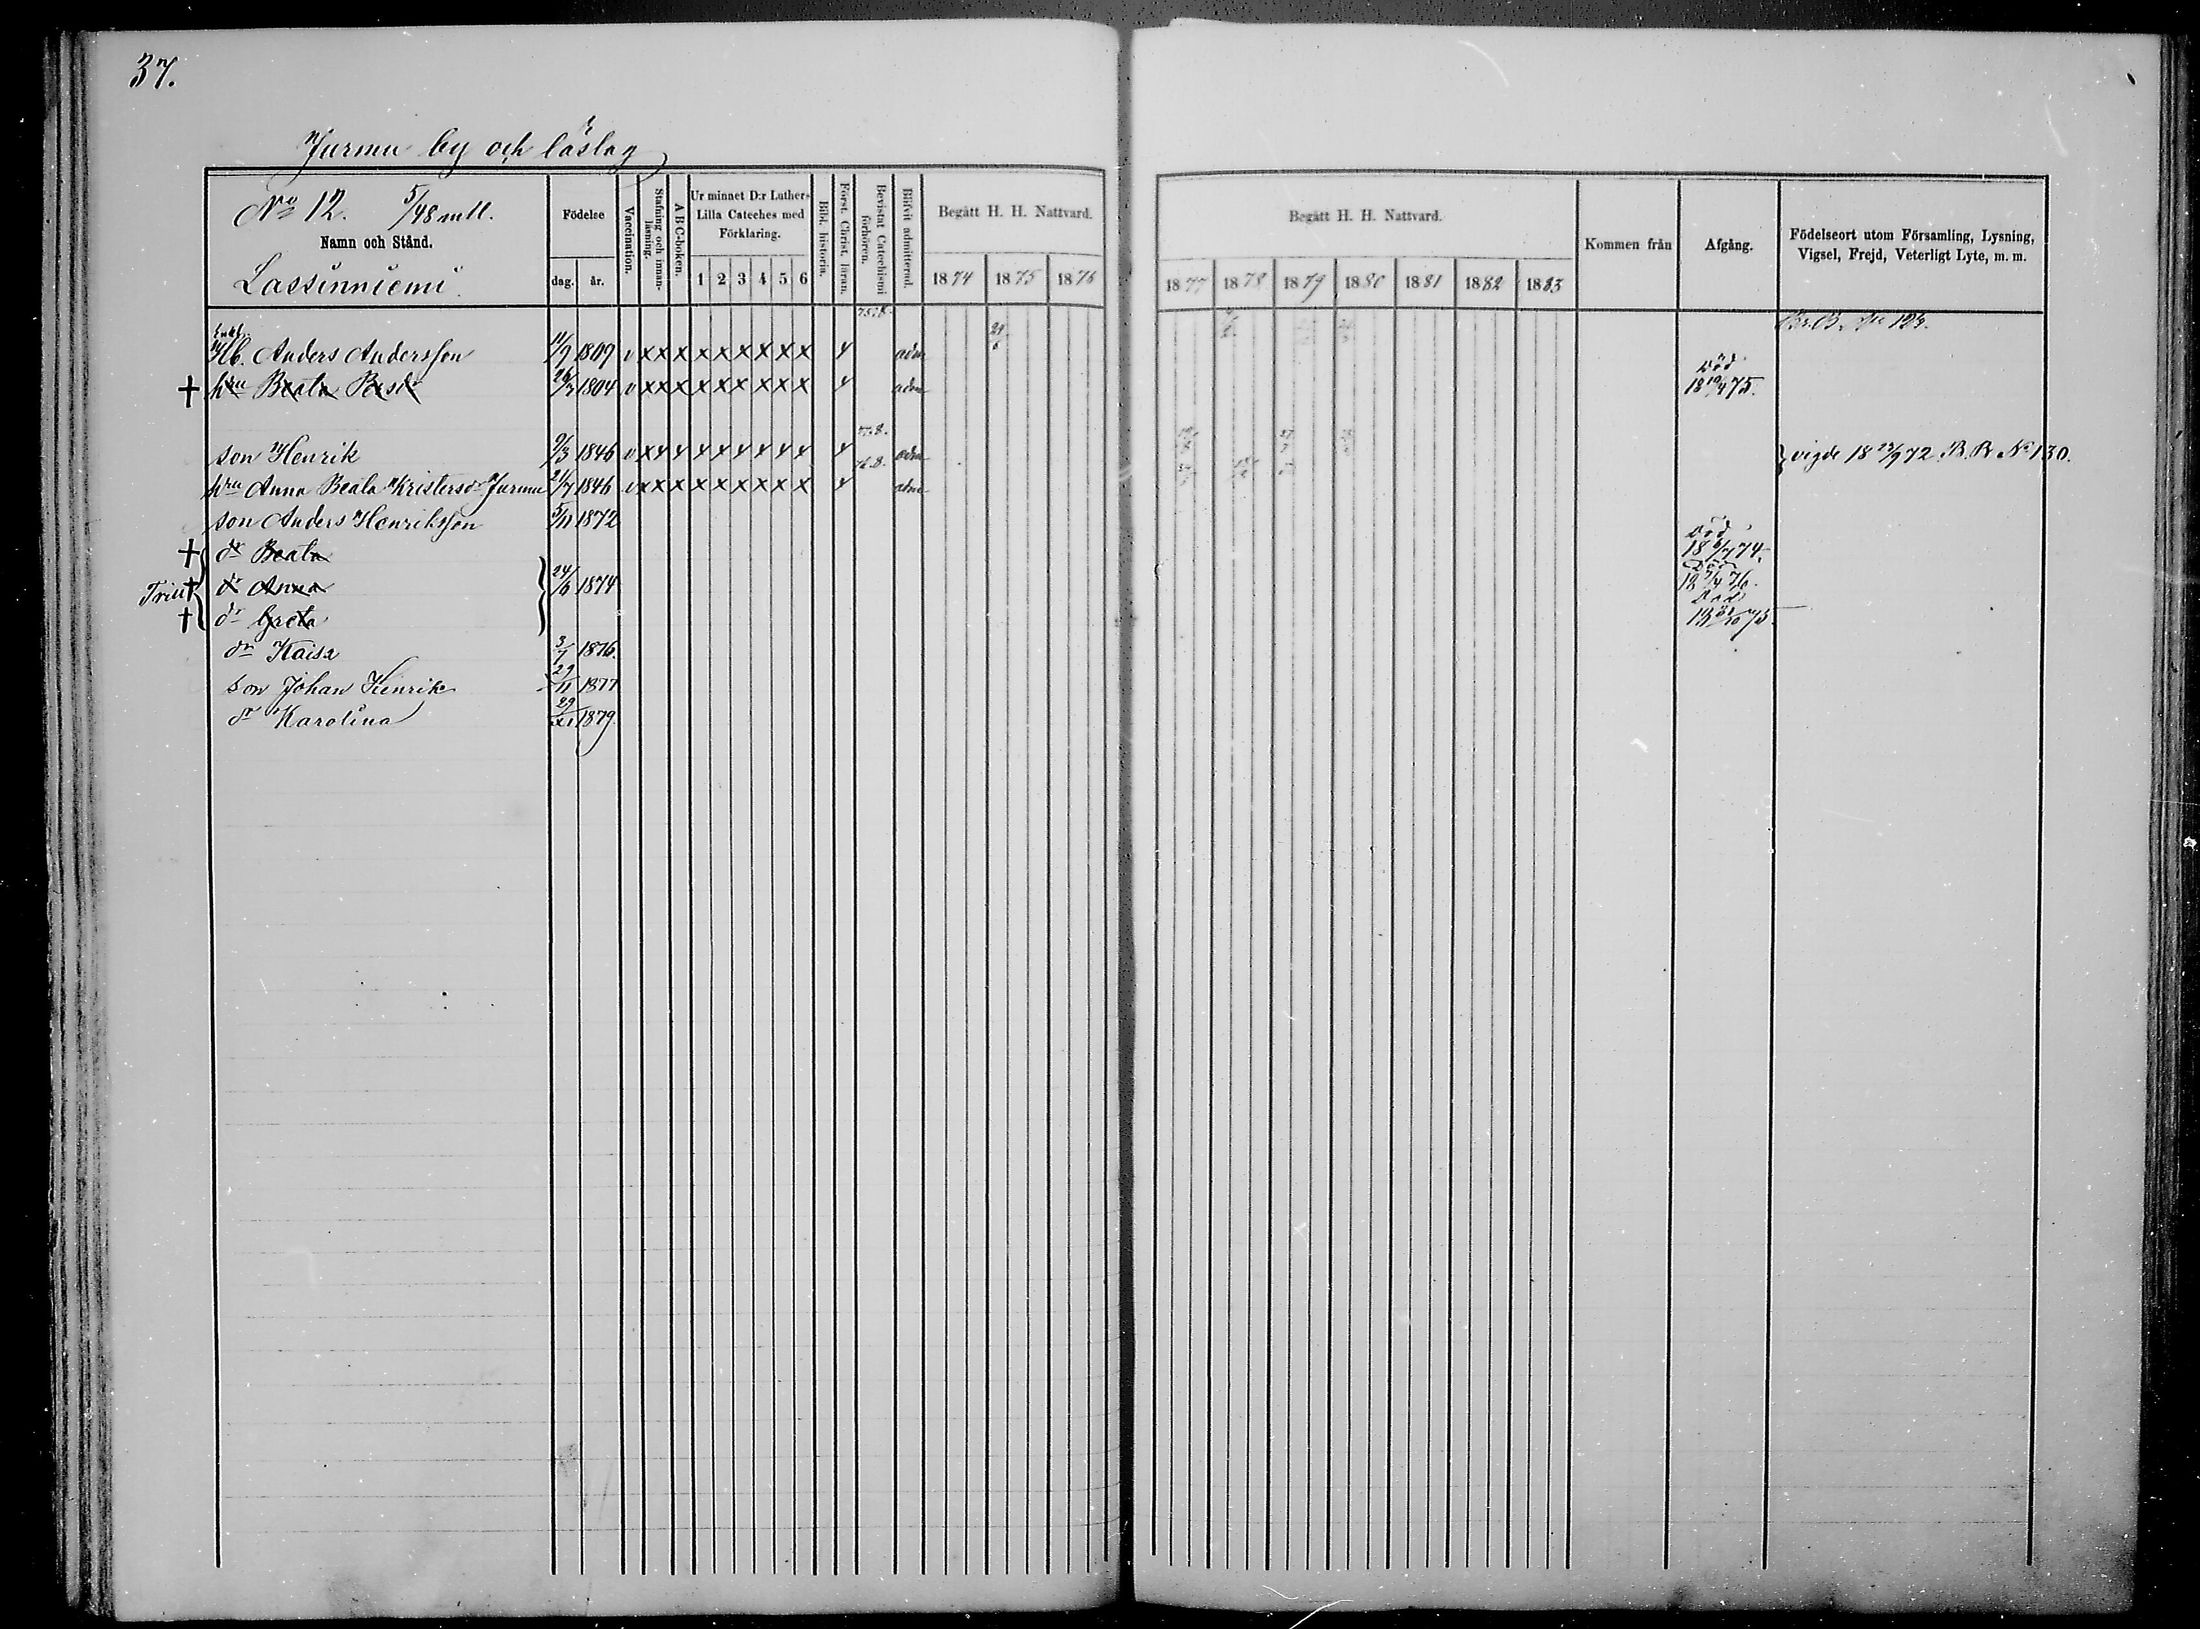 37.
Jurmu by och läslag
No 12. 5/48 mtl.
Namn och Stånd.
Lassinniemi
Födelse
dag. år.
Vaccination.
Stafning och innan-läsning.
A B C-boken.
Ur minnet D:r Luthers Lilla Cateches med Förklaring.
1 2 3 4 5 6
Bibl. historia.
Först. Christ. läran.
Bevistat Catechismi förhören.
Blifvit admitterad.
Begått H. H. Nattvard.
1874 1875 1876
Begått H. H. Nattvard.
1877 1878 1879 1880 1881 1882 1883
Kommen från
Afgång.
Födelseort utom Församling, Lysning, Vigsel, Frejd, Veterligt Lyte, m. m.
Enkl. Hb. Anders Andersson 11/9 1809 v x x x x x x x x x 4 adm
† hru Beata Persdr 26/7 1804 v x x x x x x x x x 4 adm Död 18 10/4 75.
son Henrik 9/3 1846 v x 4 4 4 4 4 4 4 4 4 adm } vigde 18 23/9 72 B. B No 130.
hru Anna Beata Kristersdr Jurmu 21/7 1846 v x x x x x x x x x 4 adm
son Anders Henriksson 5/11 1872
† dr Beata Död 18 6/7 74
Trill † dr Anna 24/6 1874 Död 18 7/4 76.
† dr Greta Död
dr Kaisa 3/7 1876.
son Johan Henrik 29/11 1877
dr Karolina 29/XI 1879.